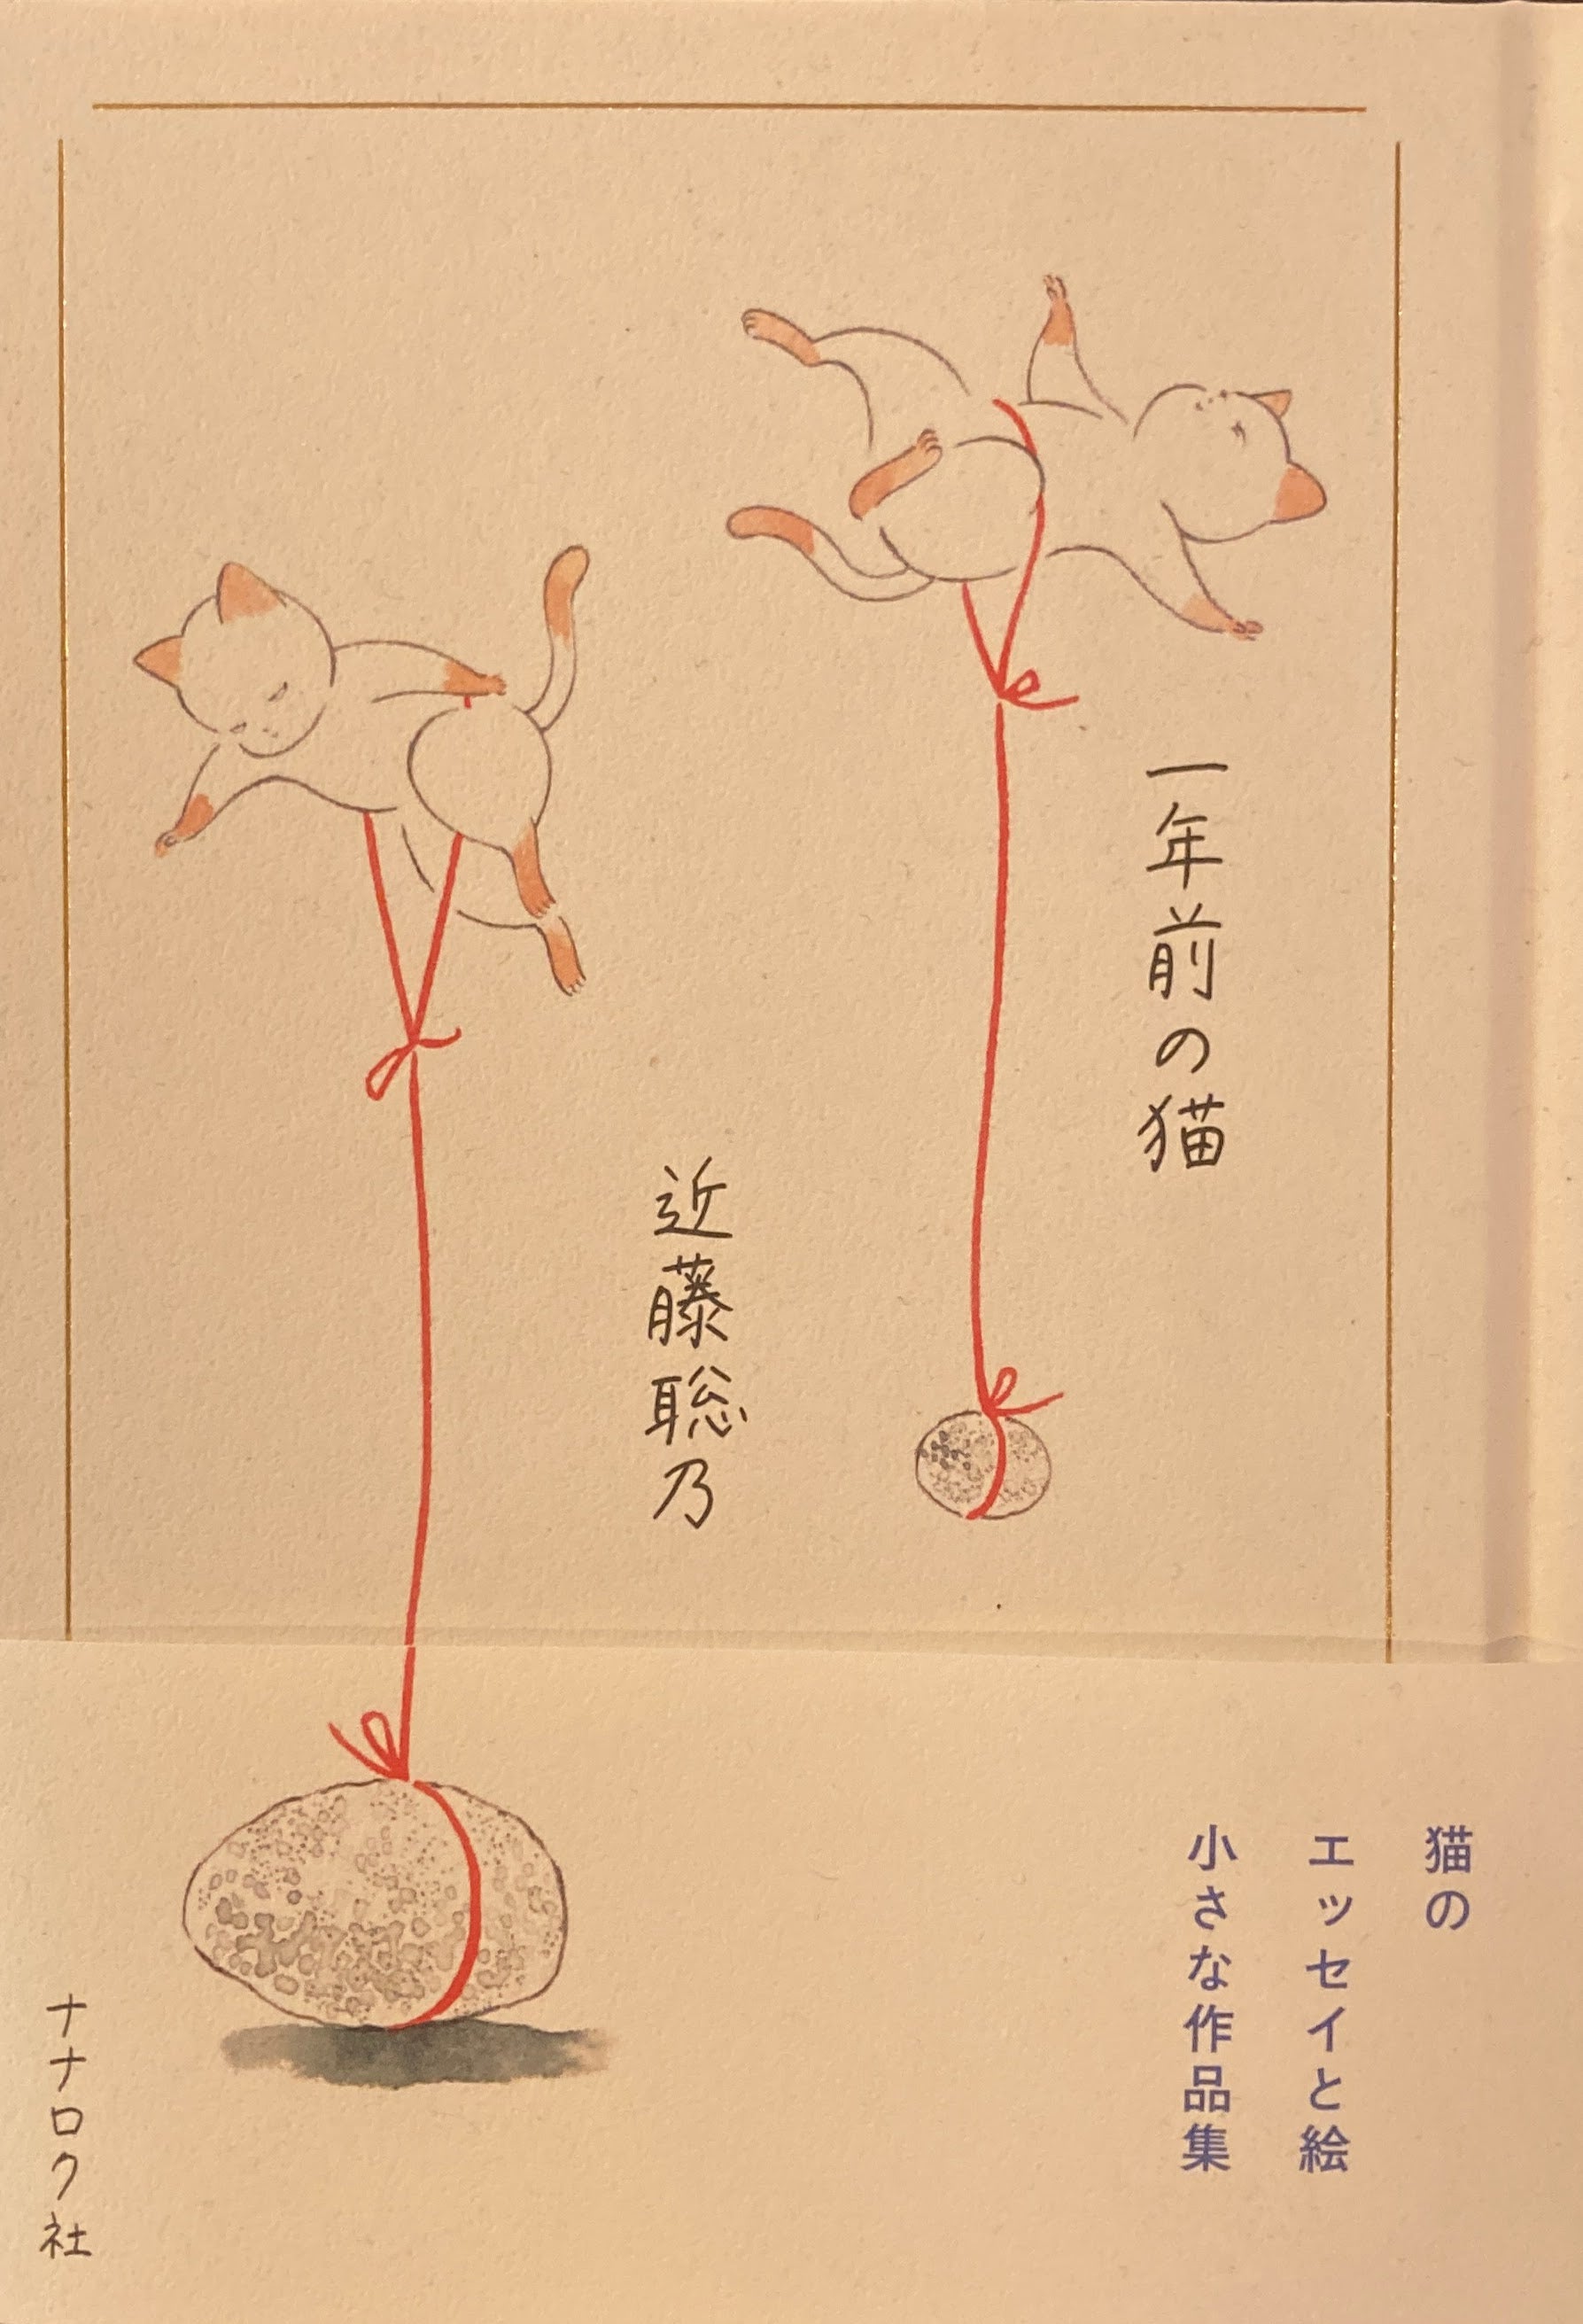 一年前の猫
近藤聡乃
猫の
エッセイと絵
小さな作品集
ナナロク社